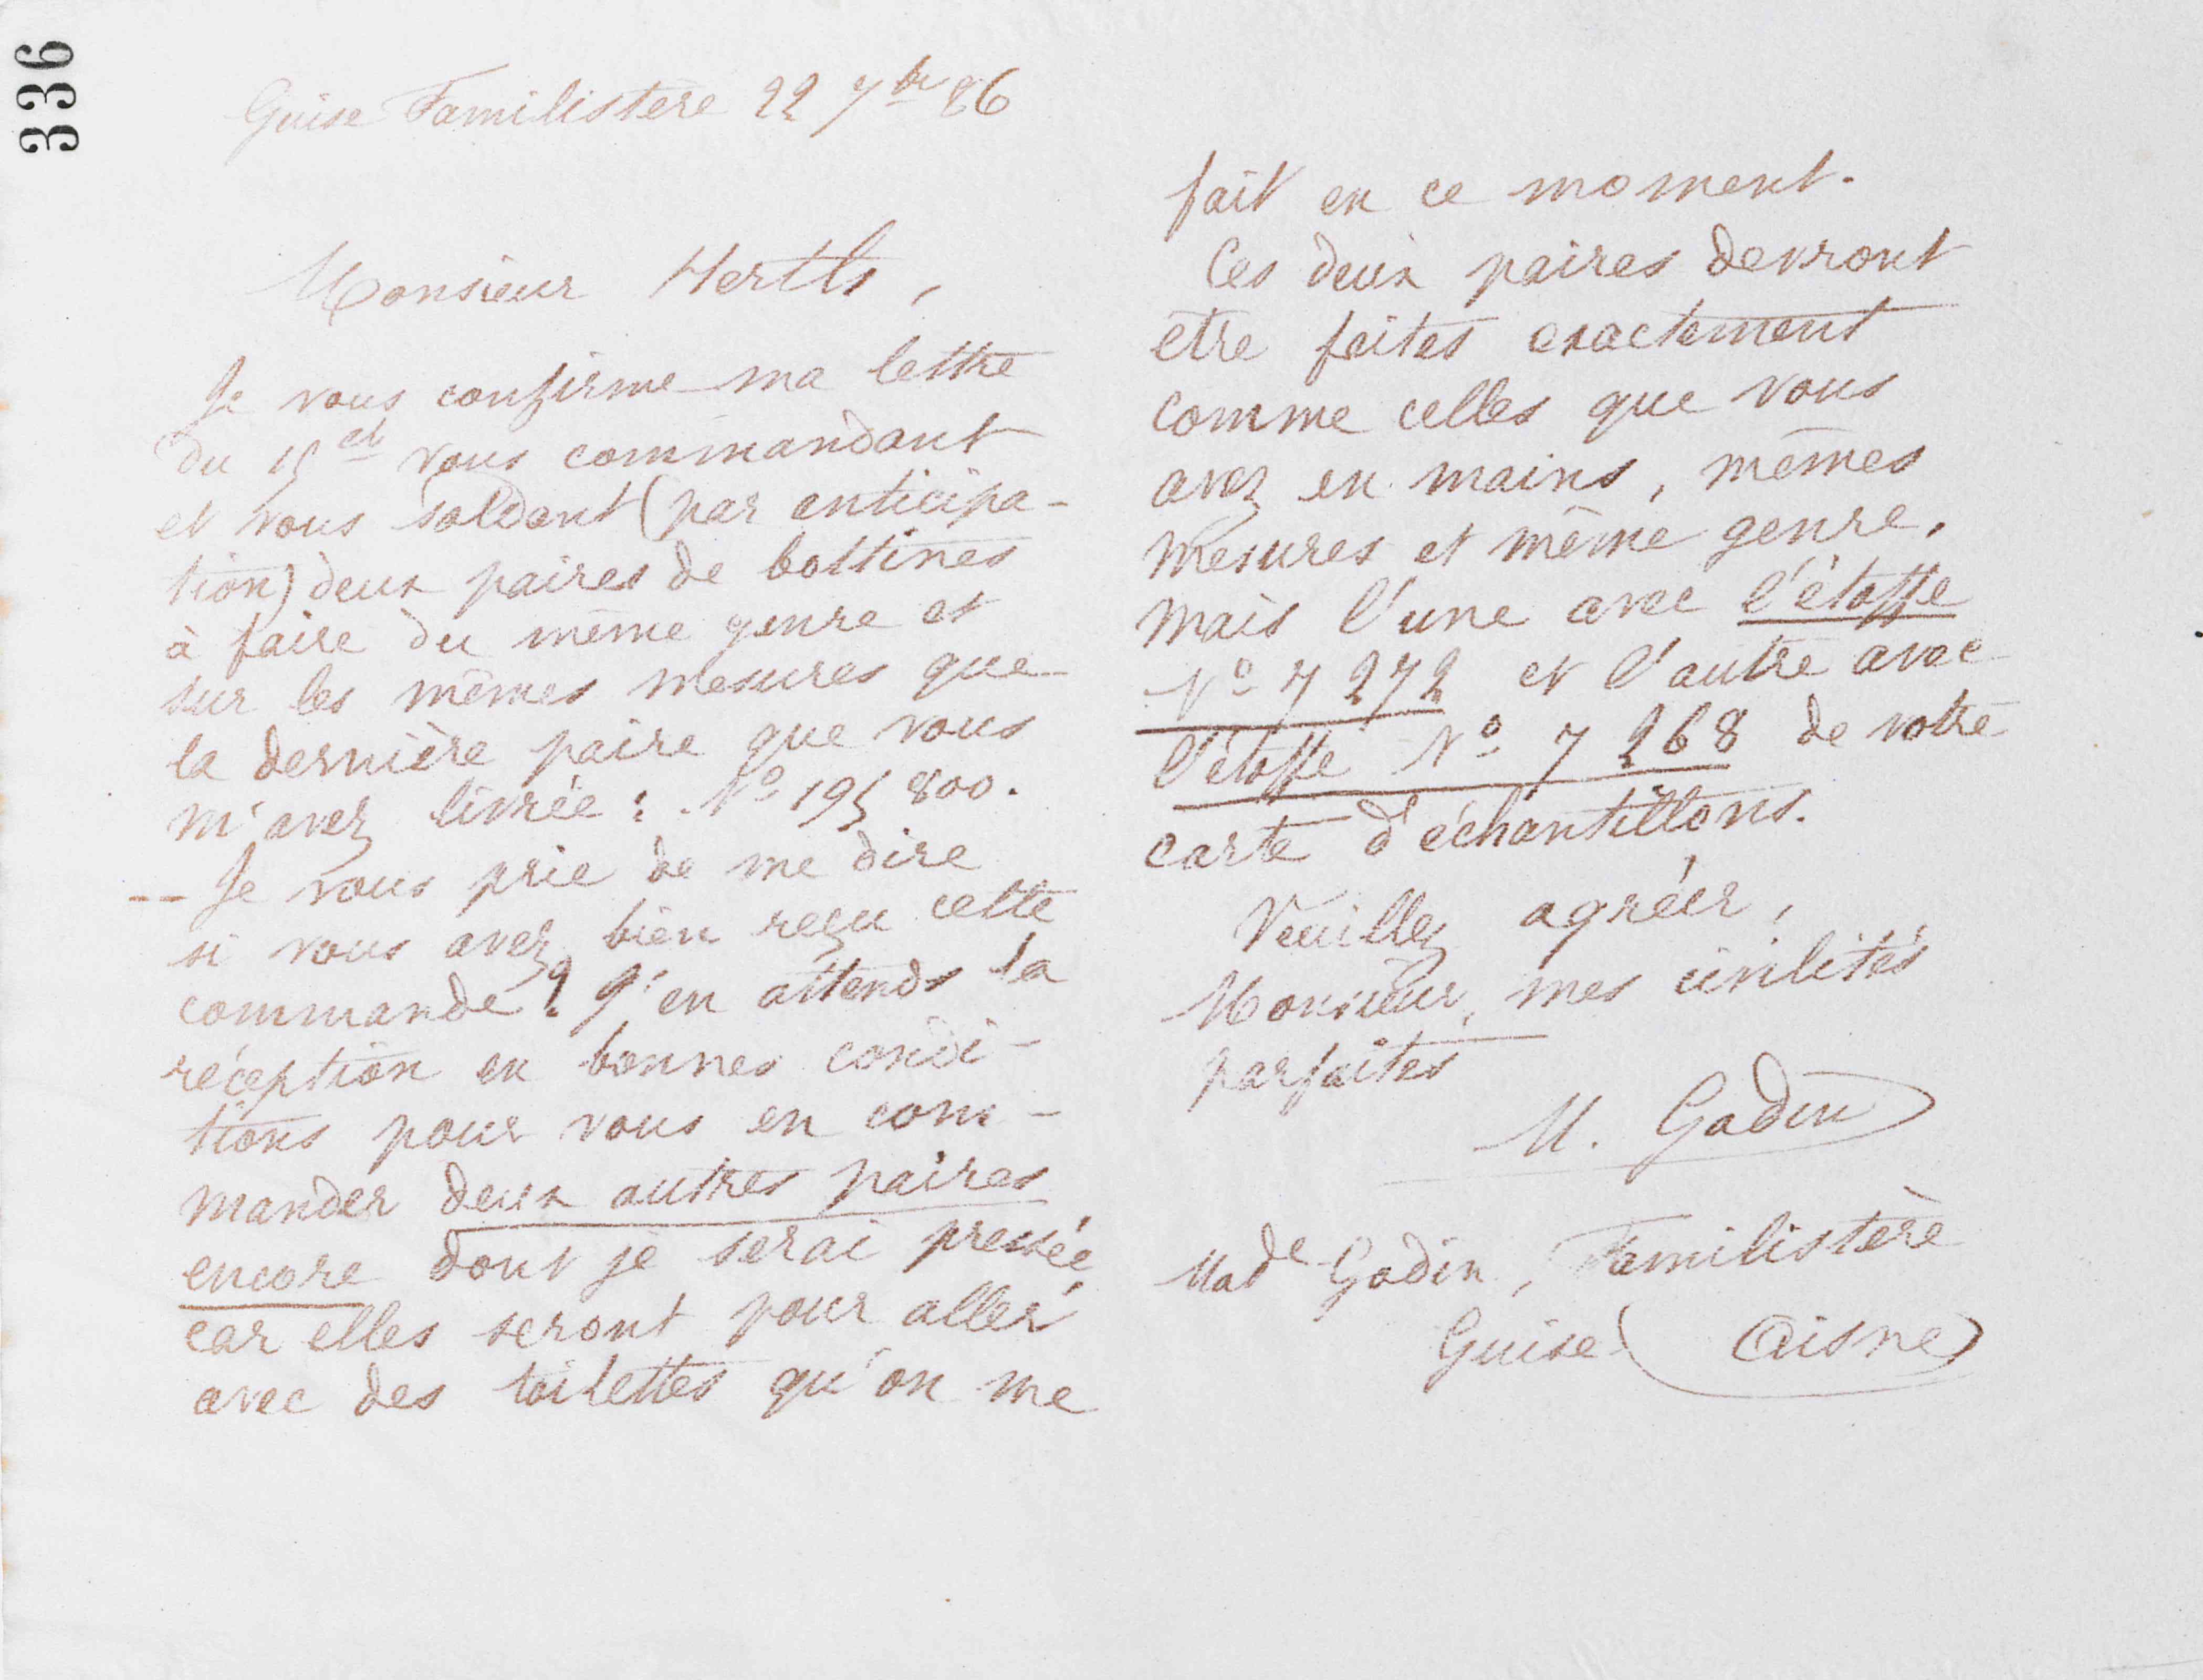 336
Guise Familistère 22 7bre 86
Monsieur Hertls,
Je vous confirme ma lettre
du 15 ct vous commandant
et vous soldant (par anticipa-
tion) deux paires de bottines
à faire du même genre et
sur les mêmes mesures que
la dernière paire que vous
m'avez livrée : No 195 800.
-- Je vous prie de me dire
si vous avez bien reçu cette
commande ? J'en attends la
réception en bonnes condi-
tions pour vous en com-
mander deux autres paires
encore dont je serai pressée
car elles seront pour aller
avec des toilettes qu'on me
fait en ce moment.
Ces deux paires devront
etre faites exactement
comme celles que vous
avez en mains, mêmes
mesures et même genre,
mais l'une avec l'étoffe
No 7 272 et l'autre avec
l'étoffe No 7 268 de votre
carte d'échantillons.
Veuillez agréer,
Monsieur, mes civilités
parfaites
M. Godin
Made Godin, Familistère
Guise (Aisne)